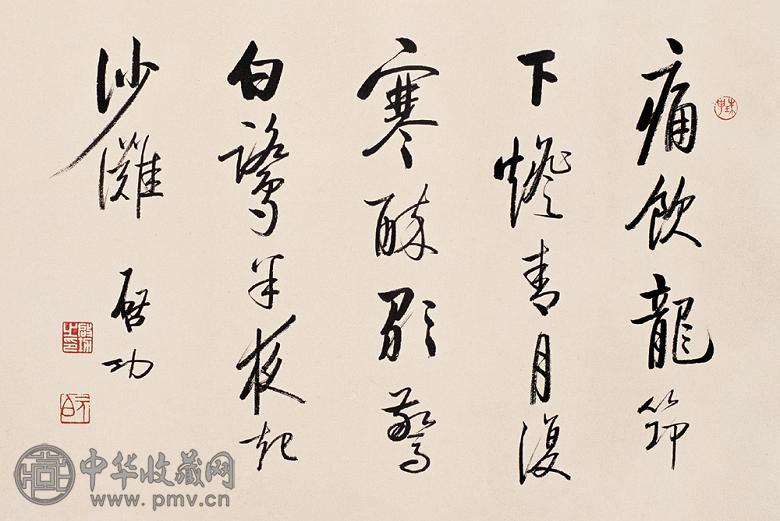 痛飲龍筇
下燈青月復
寒醉歌驚
白鷺半夜起
沙灘
啓功
元白
中华收藏网
www.pmv.cn